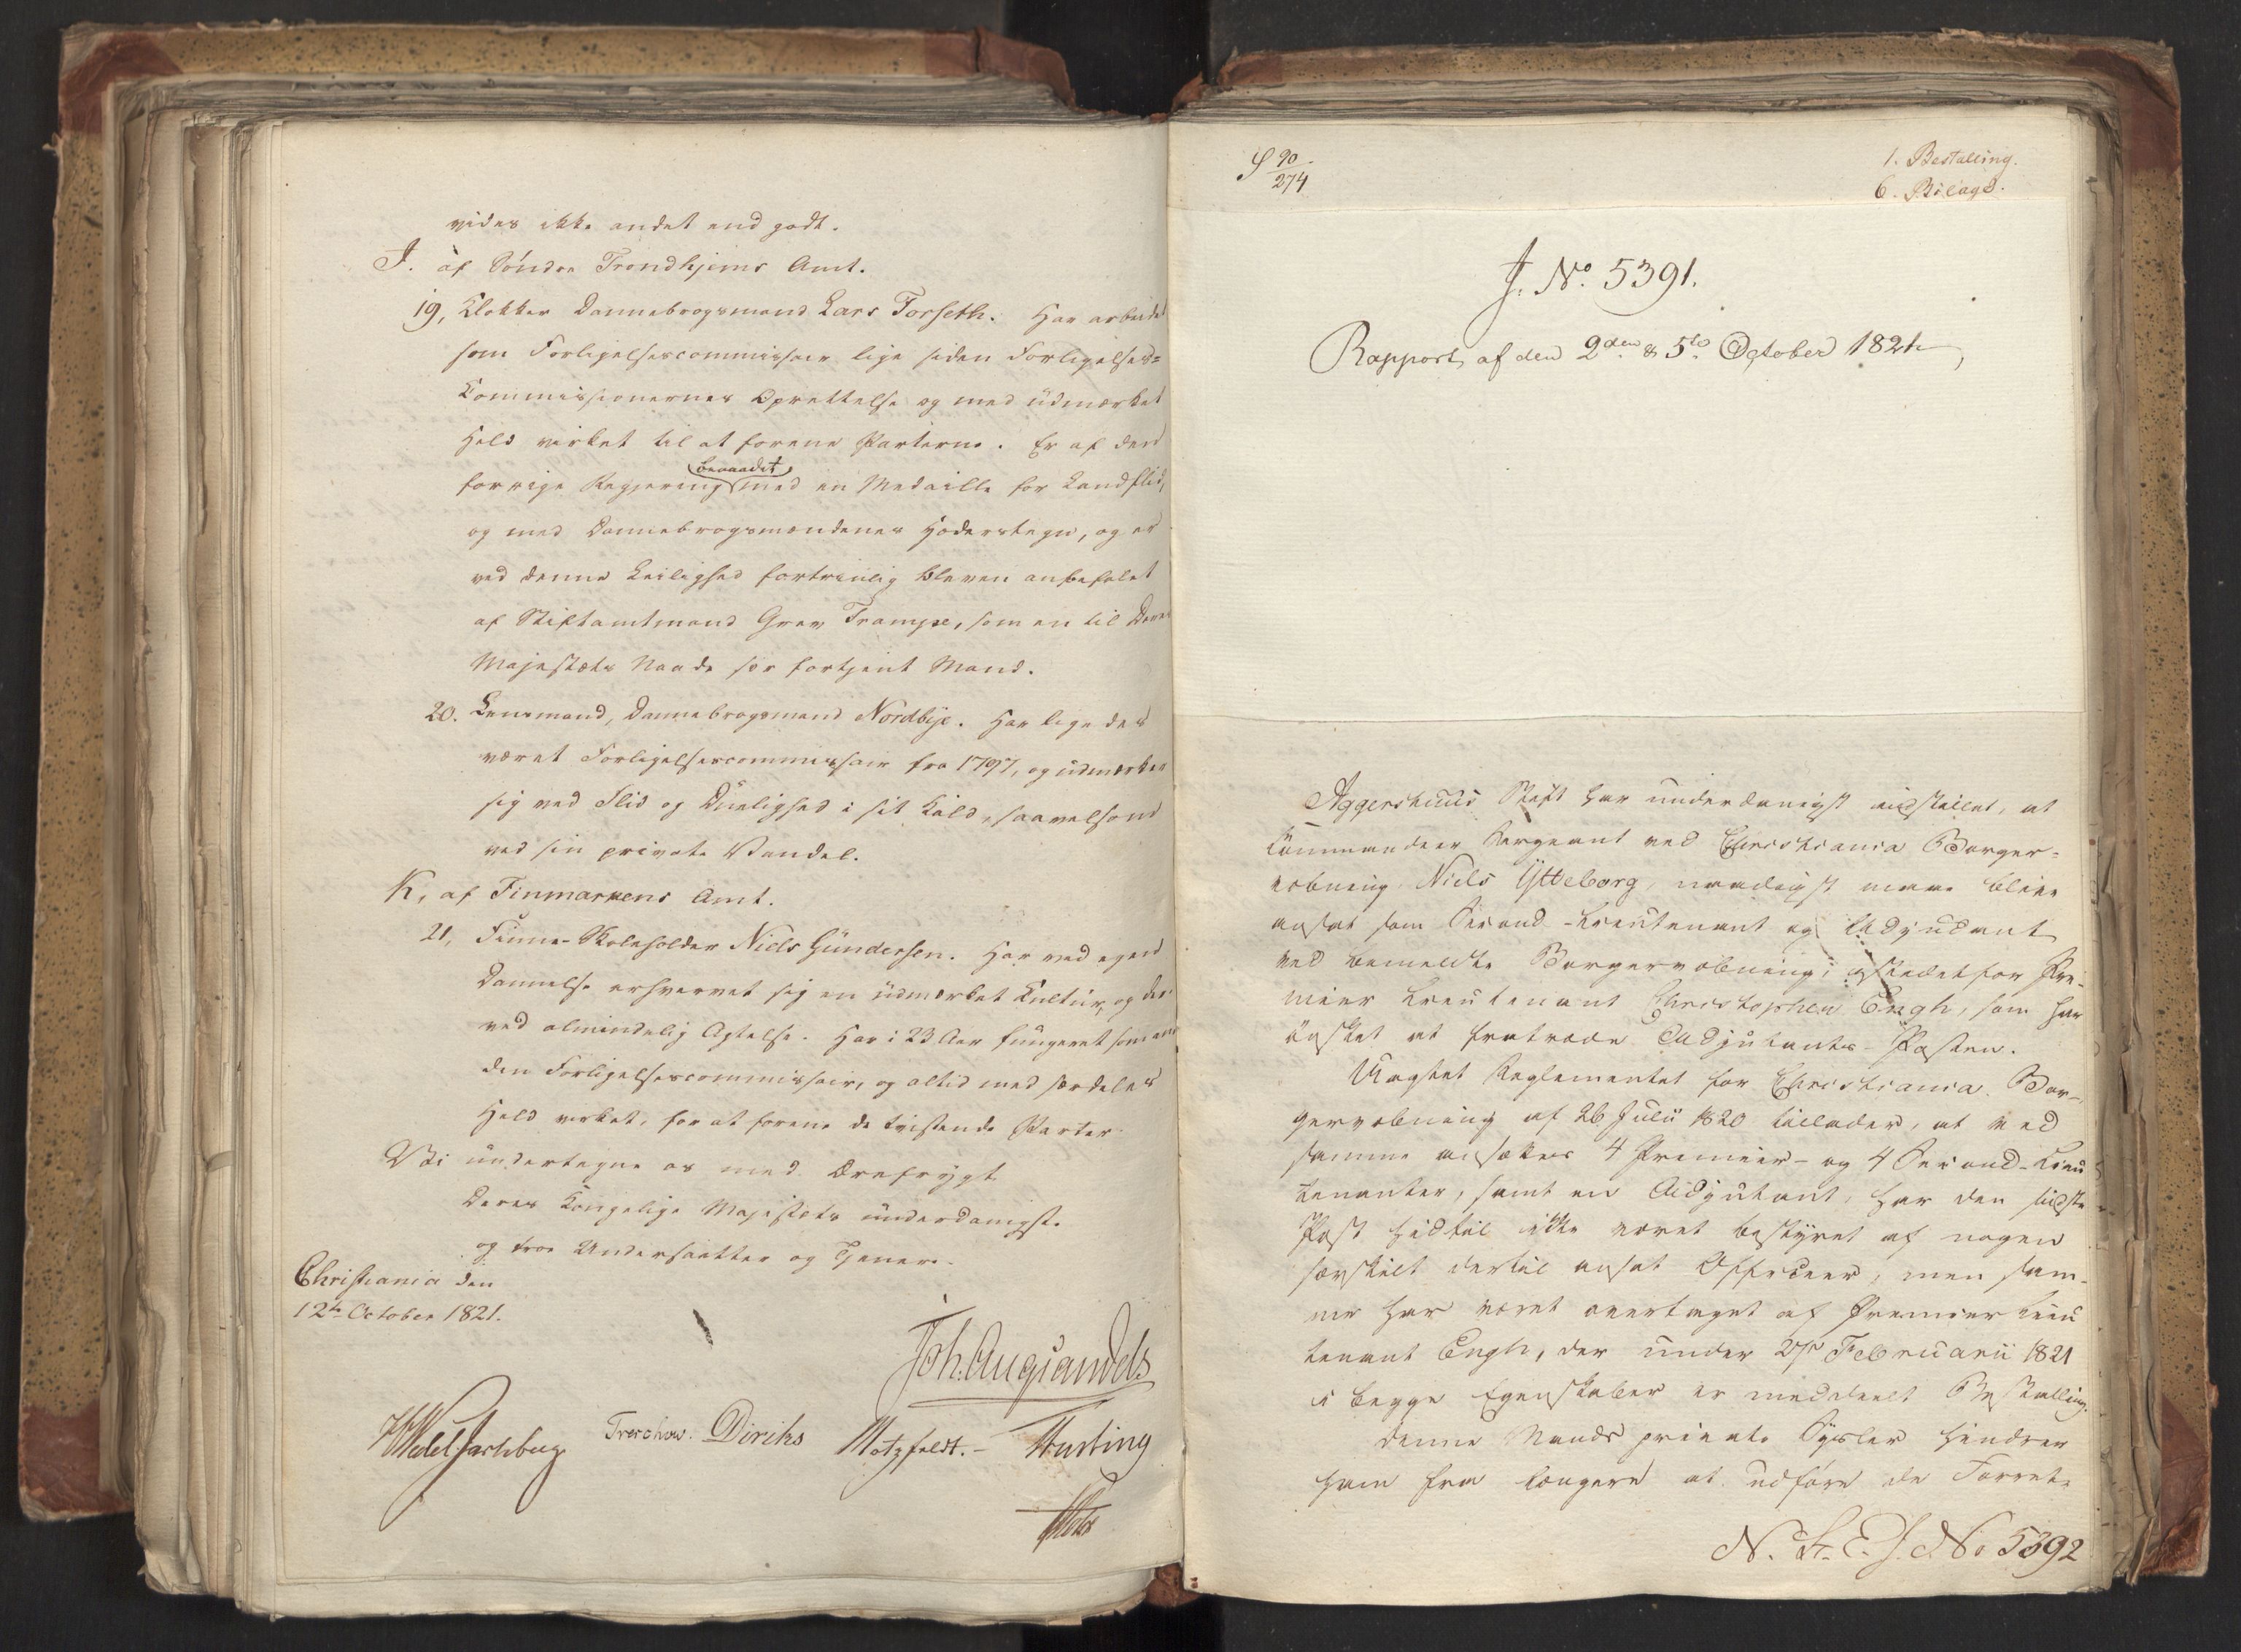 vides ikke andet end godt.
I. af Söndre Trondhjems Amt.
19, Klokker Dannebrogsmand Lars Forseth. Har arbeidet
som Forligelsescommissair lige siden Forligelses=
Commissionernes Oprettelse og med udmærket
Held virket til at forene Parterne. Er af den
forrige Regjering benaadet med en Medaille for Landflid,
og med Dannebrogsmændenes Hæderstegn, og er
ved denne Leilighed fortrinlig bleven anbefalet
af Stiftamtmand Grev Trampe, som en til Deres
Majestæts Naade sær fortjent Mand.
20. Lensmand, Dannebrogsmand Nordbye. Har ligedes
været Forligelsescommissair fra 1797, og udmærker
sig ved Flid og Duelighed i sit Kald, saavelsom
ved sin private Vandel.
K, af Finmarkens Amt.
21, Finne-Skoleholder Niels Gundersen. Har ved egen
Dannelse erhvervet sig en udmærket Kultur, og der-
ved almindelig Agtelse. Har i 23 Aar fungeret som an-
den Forligelsescommissair, og altid med særdeles
Held virket, for at forene de tvistende Parter.
Vi undertegne os med Ærefrygt
Deres Kongelige Majestæts underdanigste
og troe Undersaatter og Tjenere.
Christiania den
12te October 1821.
Joh. Aug. Sandels
HWedel Jarlsberg Treschow. Diriks Motzfeldt.-
S 90/274
1. Bestalling.
6. Bilage.
J. No. 5391.
Rapport, af den 2den & 5te October 1821,
Aggershuus Stift har underdanigst indstillet, at
Commandeer Sergeant ved Christiania Borger-
væbning Niels Ytteborg, naadigst maae blive
ansat som Second-Lieutenant og Adjudant
ved bemeldte Borgervæbning, istedetfor Pre-
mier Lieutenant Christopher Engh, som har
önsket at fratræde Adjutants-Posten.
Uagtet Reglementet for Christiania Bor-
gervæbning af 26 Julii 1820 tillader, at ved
samme ansættes 4 Premier- og 4 Second-Lieu
tenanter, samt en Adjutant, har den sidste
Post hidtil ikke været bestyret af nogen
særskilt dertil ansat Officeer, men sam-
me har været overtaget af Premier Lieu
tenant Engh, der under 27 Februarii 1821
i begge Egenskaber er meddeelt Bestalling.
Denne Mands private Sysler hindrer
ham fra længere at udföre de Forret-
N. St. E. J. No 5392